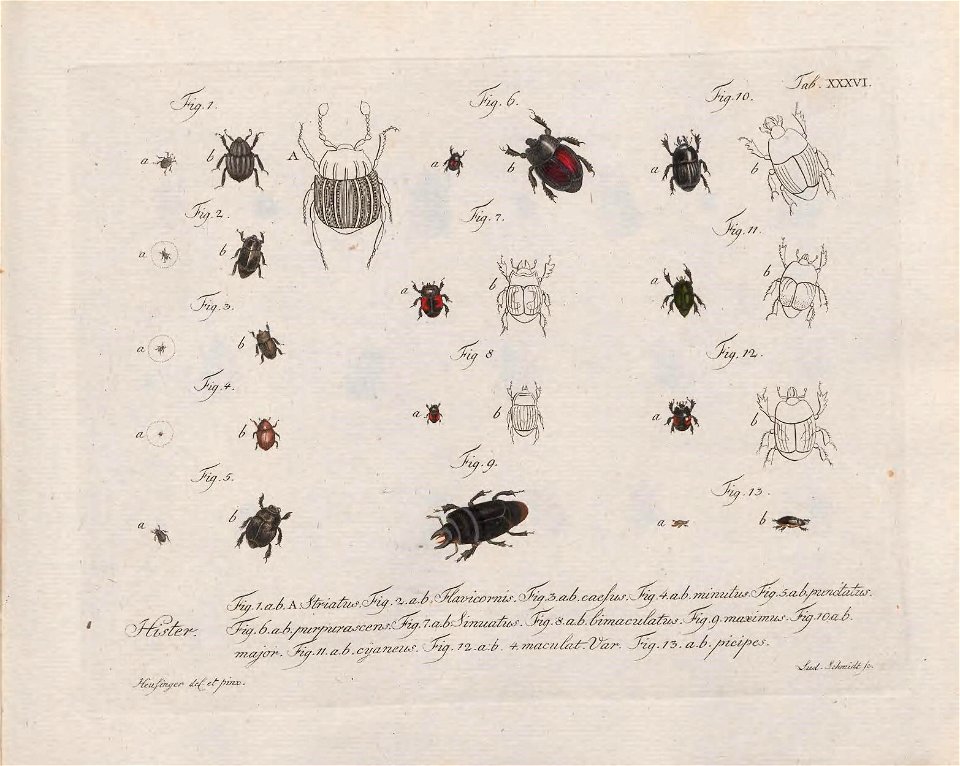 Tab. XXXVI.
Fig. 1.
a
b
A
Fig. 2.
a
b
Fig. 3.
a
b
Fig. 4.
a
b
Fig. 5.
a
b
Fig. 6.
a
b
Fig. 7.
a
b
Fig 8
a
b
Fig. 9.
Fig. 10.
a
b
Fig. 11.
a
b
Fig. 12.
a
b
Fig. 13.
a
b
Fig. 1. a.b. A Striatus. Fig. 2. a.b. Flavicornis. Fig. 3. a.b. caesus. Fig. 4. a.b. minutus. Fig. 5. a.b. punctatus.
Hister. Fig. 6. a.b. purpurascens. Fig. 7. a.b. Sinuatus. Fig. 8. a.b. bimaculatus. Fig. 9. maximus. Fig. 10. a.b.
major. Fig. 11. a.b. cyaneus. Fig. 12. a.b. 4. maculat. Var. Fig. 13. a.b. picipes.
Heusinger del. et pinx.
Lud. Schmidt sc.